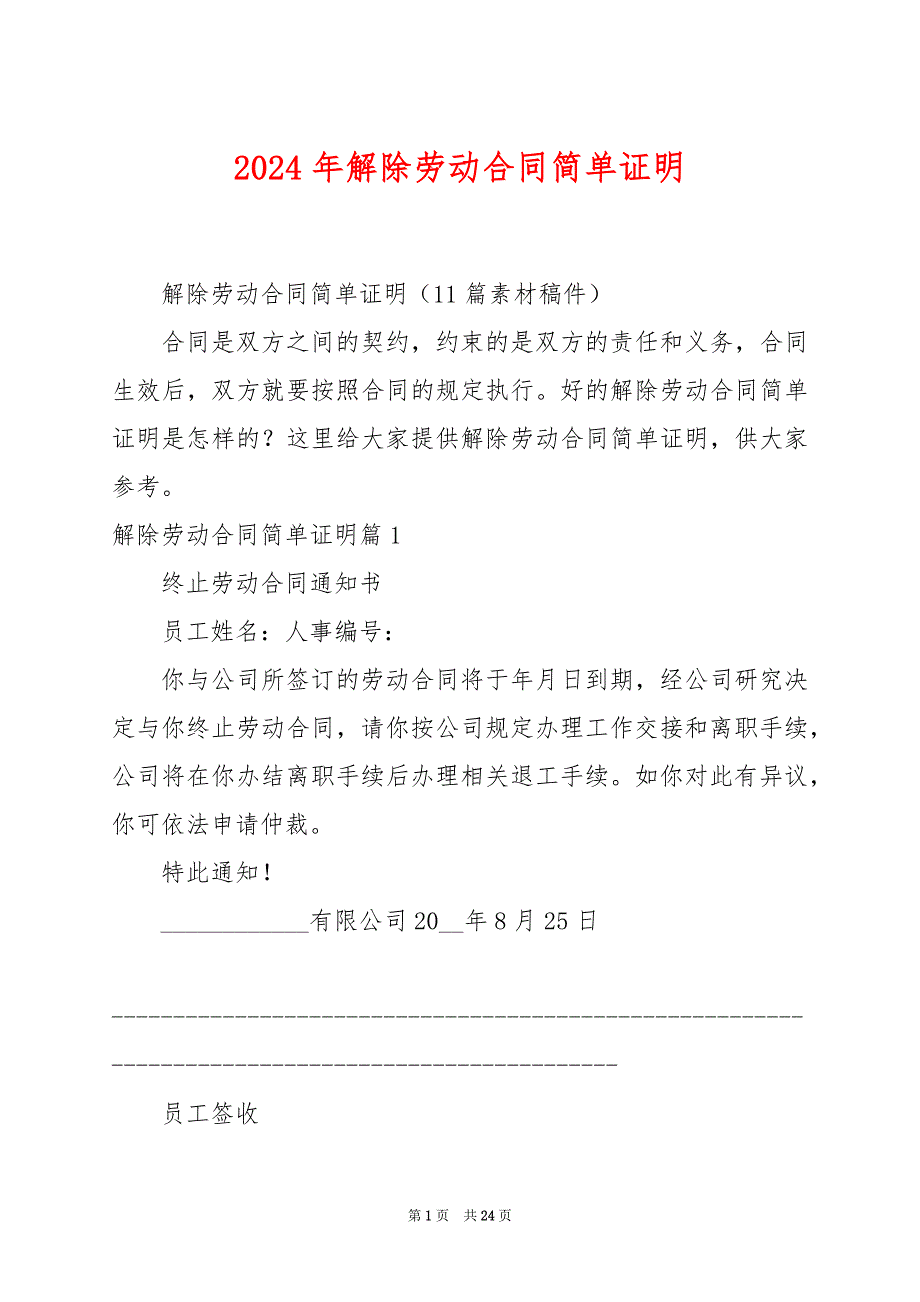 2024 年解除劳动合同简单证明
解除劳动合同简单证明（11 篇素材稿件）
合同是双方之间的契约，约束的是双方的责任和义务，合同
生效后，双方就要按照合同的规定执行。好的解除劳动合同简单
证明是怎样的？这里给大家提供解除劳动合同简单证明，供大家
参考。
解除劳动合同简单证明篇 1
终止劳动合同通知书
员工姓名：人事编号：
你与公司所签订的劳动合同将于年月日到期，经公司研究决
定与你终止劳动合同，请你按公司规定办理工作交接和离职手续，
公司将在你办结离职手续后办理相关退工手续。如你对此有异议，
你可依法申请仲裁。
特此通知！
____________有限公司 20__年 8 月 25 日
--------------------------------------------------------
-----------------------------------------
员工签收
第 1 页 共 24 页